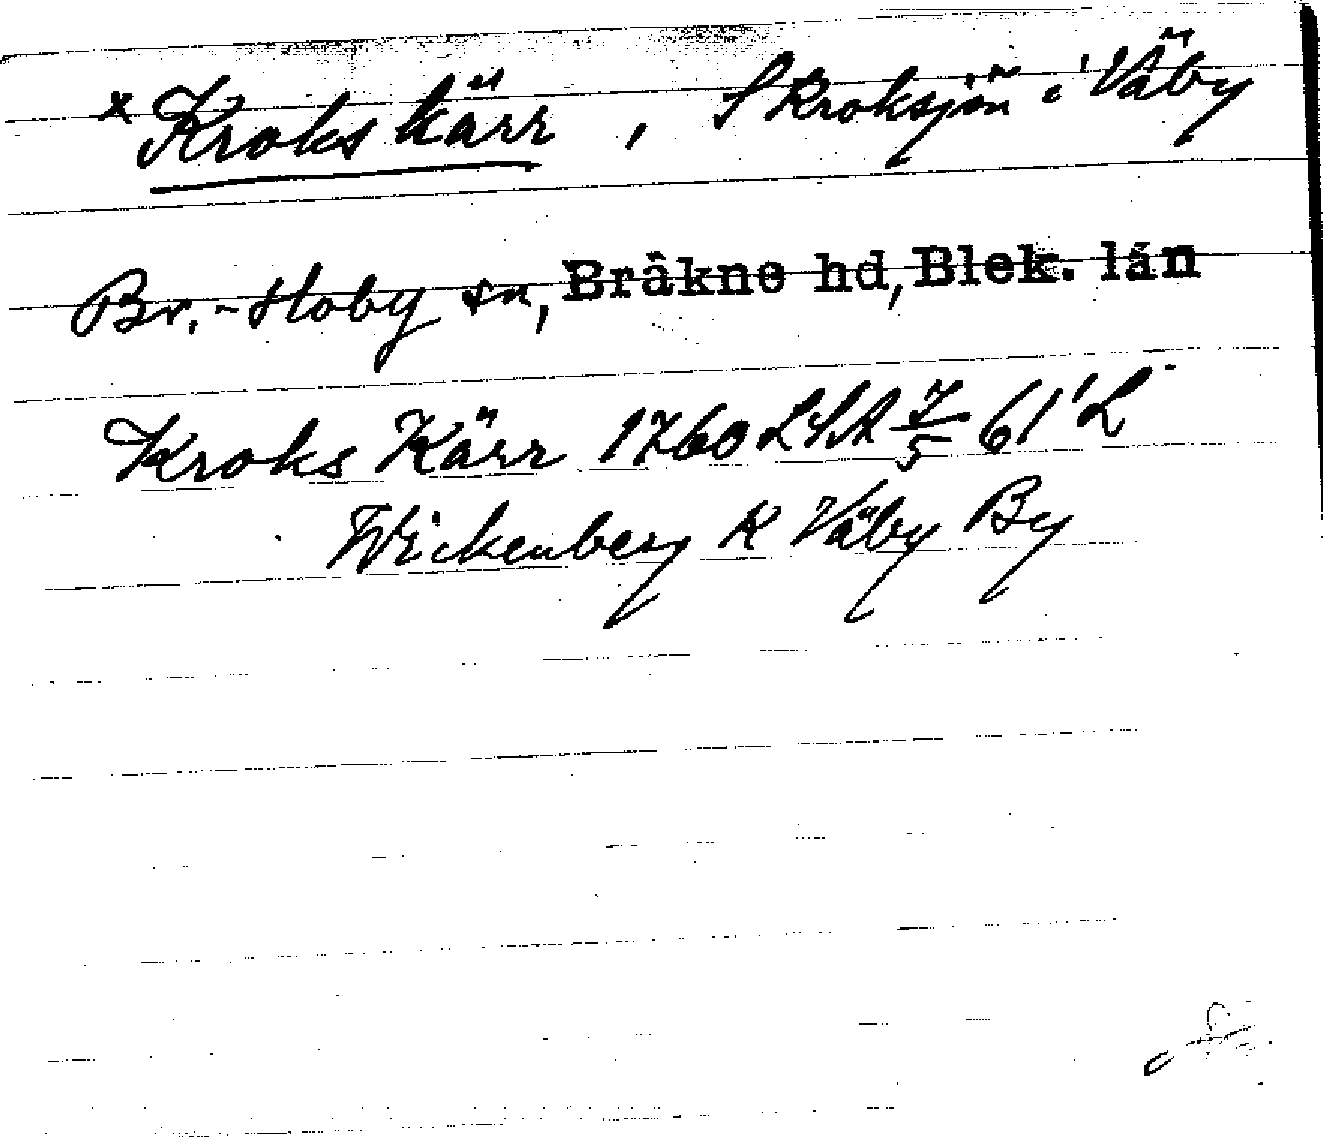 × Krokskärr, S Kroksjön i Väby
Br.-Hoby sn, Bräkne hd, Blek. län
Kroks Kärr 1760 LSA 7/5 61'L
Wickenberg K Väby By